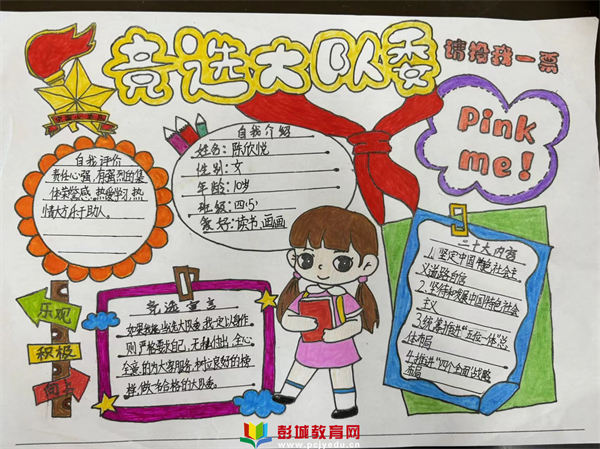 竞选大队委
请投我一票
Pink
me!
自我评价
责任心强,有强烈的集
体荣誉感。热爱学习,热
情大方乐于助人。
自我介绍
姓名:陈欣悦
性别:女
年龄:10岁
班级:四(5)
爱好:读书 画画
二十大内容
1、坚定中国特色社会主
义道路自信
2、坚持和发展中国特色社会
主义
3、统筹推进“五位一体”总
体布局
4、推进“四个全面”战略
布局
乐观
积极
向上
竞选宣言
如果我能当选大队委,我一定以身作
则严格要求自己,无私付出,全心
全意的为大家服务,树立良好的榜
样,做一名合格的大队委。
彭城教育网
www.pcjyedu.cn